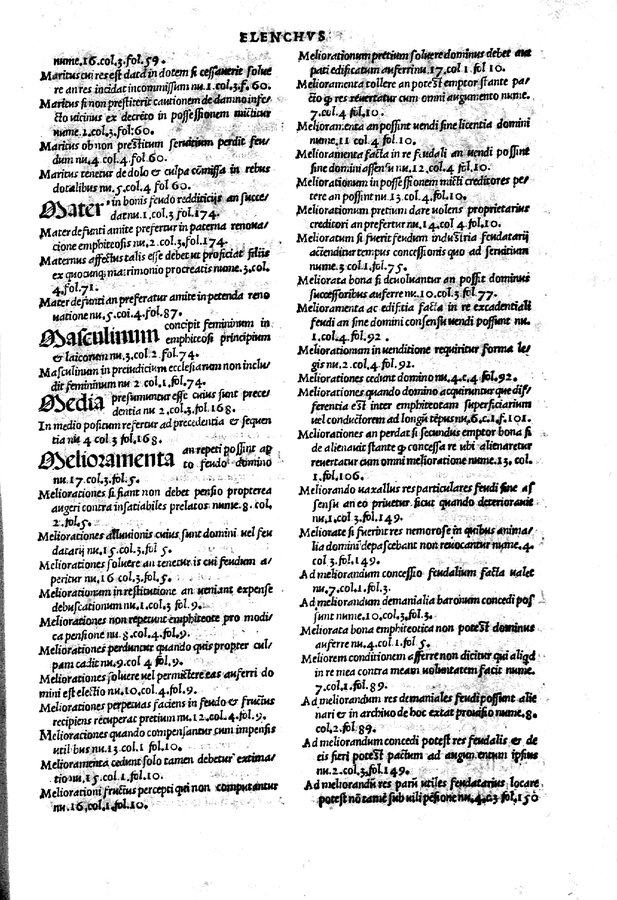 ELENCHVS
nume.16.col.3.fol.59.
Maritus cui res est data in dotem si cessauerit solue
re an res incidat in commissum nu.1.col.3.f.60.
Maritus si non prestiterit cautionem de damno infe/
cto vicinus ex decreto in possessionem mictitur
nume.1.col.3.fol:60.
Maritus ob non prestitum seruitium perdit feu/
dum nu.4.col.4.fol.60.
Maritus tenetur de dolo & culpa cōmissa in rebus
dotalibus nu.5.col.4 fol 60.
Mater in bonis feudo redditicijs an succe/
dat nu.1.col.3 fol.174.
Mater defuncti amite prefertur in paterna renoua/
cione emphiteosis nu.2.col.3.fol.174.
Maternus affectus talis esse debet ut proficiat filijs
ex quocunq; matrimonio procreatis nume.3.col.
4.fol.71.
Mater defuncti an preferatur amite in petenda reno
uatione nu.5.col.4.fol.87.
Masculinum concipit femininum in
emphiteosi principium
& laicorum nu.3.col.2.fol.74.
Masculinum in preiudicium ecclesiarum non inclu/
dit femininum nu 2 col.1.fol.74.
Media presumuntur esse cuius sunt prece/
dentia nu 2.col.3.fol.168.
In medio positum refertur ad precedentia & sequen
tia nu 4 col 3 fol.168.
Melioramenta an repeti possint ap
to feudo domino
nu.17.col.3.fol.5.
Meliorationes si fiant non debet pensio propterea
augeri contra insatiabiles prelatos nume.8.col.
2.fol.5.
Meliorationes alluuionis cuius sunt domini uel feu
datarij nu.15.col.3.fol 5.
Meliorationes soluere an tenetur is cui feudum a/
peritur nu.16 col.3.fol.5.
Meliorationum in restitutione an ueniant expense
debuscationum nu.1.col.3 fol.9.
Meliorationes non repetunt emphiteote pro modi/
ca pensione nu.8.col.4.fol.9.
Meliorationes perduntur quando quis propter cul/
pam cadit nu.9.col 4 fol.9.
Meliorationes soluere uel permictere eas auferri do
mini est electio nu.10.col.4.fol.9.
Meliorationes perpetuas faciens in feudo & fructus
recipiens recuperat pretium nu.12.col.4.fol.9.
Meliorationes quando compensantur cum impensis
utilibus nu.13.col.1 fol.10.
Melioramenta cedunt solo tamen debetur extima/
tio nu.15.col.1.fol.10.
Meliorationi fructus percepti qui non computantur
nu.16.col.1.fol.10.
Meliorationum pretium soluere dominus debet aut
pati edificatum auferri nu.17.col 1.fol 10.
Melioramenta tollere an potest emptor stante pa/
cto q̃ res reuertatur cum omni augumento nume.
7.col.4 fol.10.
Melioramenta an possint uendi sine licentia domini
nume.11 col 4.fol.10.
Melioramenta facta in re feudali an uendi possint
sine domini assensu nu.12.col.4 fol.10.
Meliorationum in possessionem micti creditores pe/
tere an possint nu.13.col.4.fol.10.
Meliorationum pretium dare uolens proprietarius
creditori an prefertur nu.14.col 4.fol.10.
Melioratum si fuerit feudum industria feudatarij
actenditur tempus concessionis quo ad seruitium
nume.3 col.1.fol.75.
Meliorata bona si deuoluantur an possit dominus
successoribus auferre nu.10.col.3.fol.77.
Melioramenta ac edificia facta in re excadentiali
feudi an sine domini consensu uendi possunt nu.
1.col.4.fol.92.
Meliorationum in uenditione requiritur forma le/
gis nu.2.col.4.fol.92.
Meliorationes cedunt domino nu.4.c.4.fol.92.
Meliorationes quando domino acquiruntur que dif/
ferentia est inter emphiteotam superficiarium
uel conductorem ad longū tēpus nu.6.c.1.f.101.
Meliorationes an perdat si secundus emptor bona si
de alienauit stante q̃ concessa re ubi alienaretur
reuertatur cum omni melioratione nume.13.col.
1.fol.106.
Meliorando uaxallus res particulares feudi sine as/
sensu an eo priuetur sicut quando deteriorauit
nu.1.col.3 fol.149.
Meliorate si fuerint res nemorose in quibus anima/
lia domini depascebant non reuocantur nume.4.
col 3.fol.149.
Ad meliorandum concessio feudalium facta ualet
nu.7.col.1.fol.3.
Ad meliorandum demanialia baronum concedi pos
sunt nume.10.col.3.fol.3.
Meliorata bona emphiteotica non potest dominus
auferre nu.4.col.1.fol 5.
Meliorem conditionem afferre non dicitur qui aliqd
in re mea contra meam uoluntatem facit nume.
7.col.1.fol 89.
Ad meliorandum res demaniales feudi possunt alie
nari & in archiuo de hoc extat prouisio nume.8.
col.2.fol 89.
Ad meliorandum concedi potest res feudalis & de
eis fieri potest pactum ad augumentum ipsius
nu.2.col.3.fol.149.
Ad meliorandū res parū utiles feudatarius locare
potest nō tamē sub uili pēsione nu.4.c3 fol.150